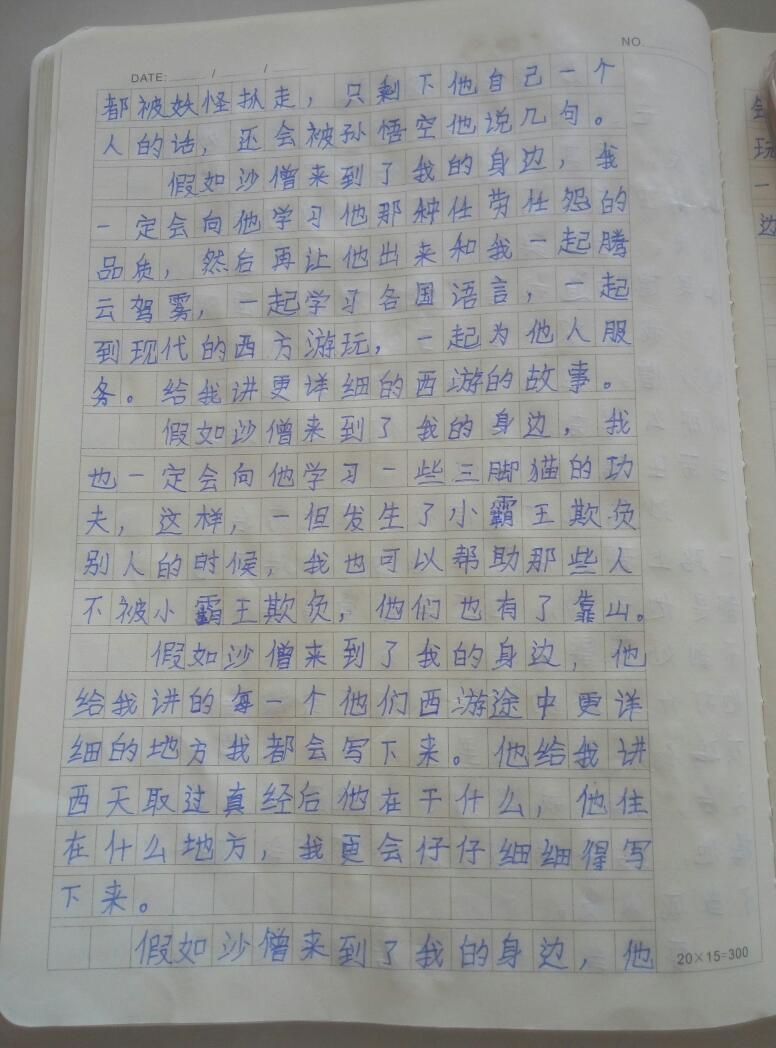 NO.
DATE: / /
都被妖怪扒走，只剩下他自己一个
人的话，还会被孙悟空他说几句。
假如沙僧来到了我的身边，我
一定会向他学习他那种任劳任怨的
品质，然后再让他出来和我一起腾
云驾雾，一起学习各国语言，一起
到现代的西方游玩，一起为他人服
务。给我讲更详细的西游的故事。
假如沙僧来到了我的身边，我
也一定会向他学习一些三脚猫的功
夫，这样，一但发生了小霸王欺负
别人的时候，我也可以帮助那些人
不被小霸王欺负，他们也有了靠山。
假如沙僧来到了我的身边，他
给我讲的每一个他们西游途中更详
细的地方我都会写下来。他给我讲
西天取过真经后他在干什么，他住
在什么地方，我更会仔仔细细得写
下来。
假如沙僧来到了我的身边，他
20×15=300
玩
一
边